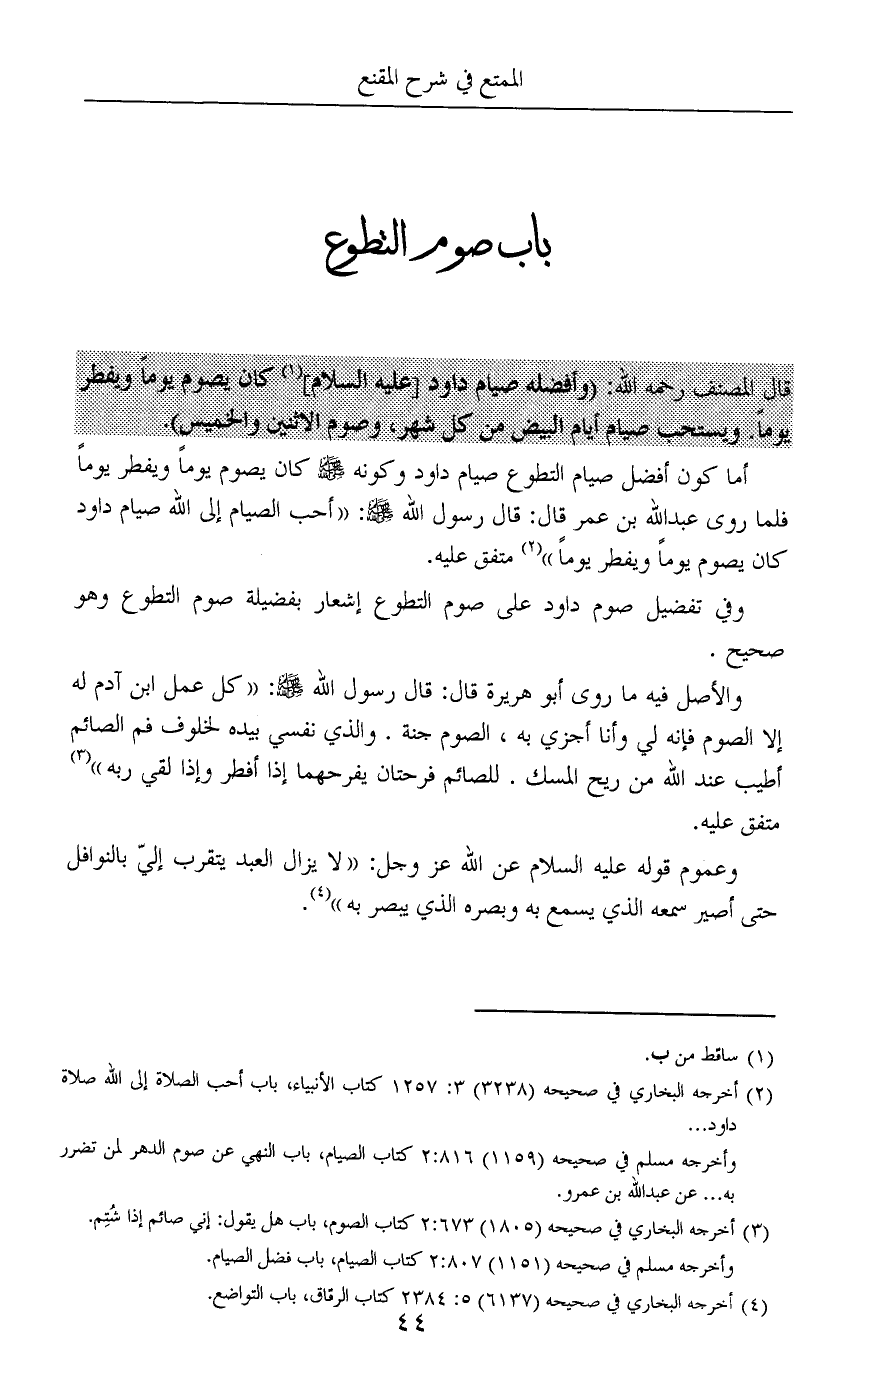 الممتع في شرح المقنع
باب صوم التطوع
قال المصنف رحمه الله: (وأفضله صيام داود [عليه السلام](١) كان يصوم يوماً ويفطر
يوماً. ويستحب صيام أيام البيض من كل شهر، وصوم الاثنين والخميس).
أما كون أفضل صيام التطوع صيام داود وكونه ﷺ كان يصوم يوماً ويفطر يوماً
فلما روى عبدالله بن عمر قال: قال رسول الله ﷺ: «أحب الصيام إلى الله صيام داود
كان يصوم يوماً ويفطر يوماً»(٢) متفق عليه.
وفي تفضيل صوم داود على صوم التطوع إشعار بفضيلة صوم التطوع وهو
صحيح .
والأصل فيه ما روى أبو هريرة قال: قال رسول الله ﷺ: «كل عمل ابن آدم له
إلا الصوم فإنه لي وأنا أجزي به ، الصوم جنة . والذي نفسي بيده لخلوف فم الصائم
أطيب عند الله من ريح المسك . للصائم فرحتان يفرحهما إذا أفطر وإذا لقي ربه»(٣)
متفق عليه.
وعموم قوله عليه السلام عن الله عز وجل: «لا يزال العبد يتقرب إليّ بالنوافل
حتى أصير سمعه الذي يسمع به وبصره الذي يبصر به»(٤).
(١) ساقط من ب.
(٢) أخرجه البخاري في صحيحه (٣٢٣٨) ٣: ١٢٥٧ كتاب الأنبياء، باب أحب الصلاة إلى الله صلاة
داود...
وأخرجه مسلم في صحيحه (١١٥٩) ٢:٨١٦ كتاب الصيام، باب النهي عن صوم الدهر لمن تضرر
به... عن عبدالله بن عمرو.
(٣) أخرجه البخاري في صحيحه (١٨٠٥) ٢:٦٧٣ كتاب الصوم، باب هل يقول: إني صائم إذا شُتِم.
وأخرجه مسلم في صحيحه (١١٥١) ٢:٨٠٧ كتاب الصيام، باب فضل الصيام.
(٤) أخرجه البخاري في صحيحه (٦١٣٧) ٥: ٢٣٨٤ كتاب الرقاق، باب التواضع.
٤٤